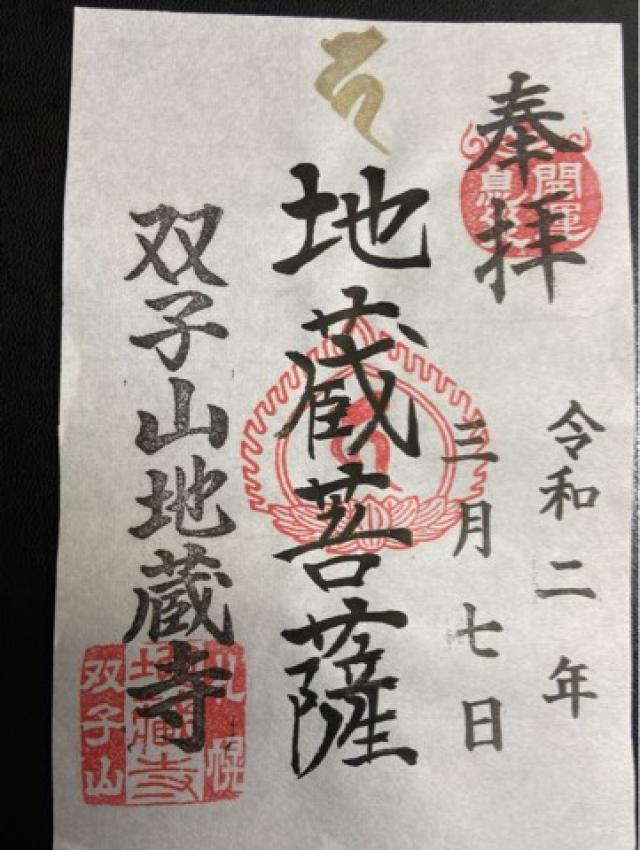 奉拝
開運
令和二年
三月七日
地蔵菩薩
双子山地蔵寺
札幌
地蔵寺
双子山